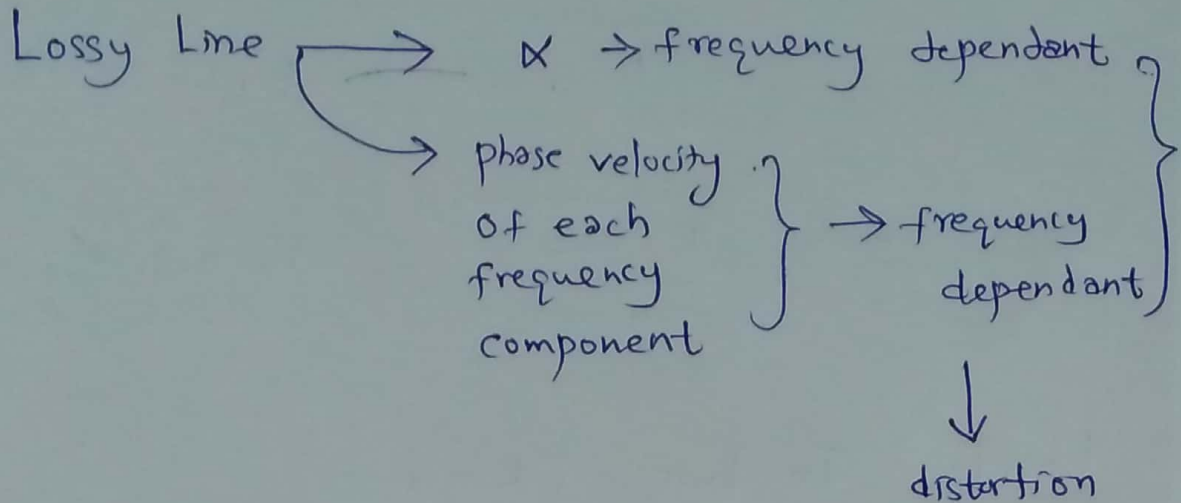 Lossy Line → α → frequency dependant
→ phase velocity
of each
frequency
component
→ frequency
dependant
↓
distortion